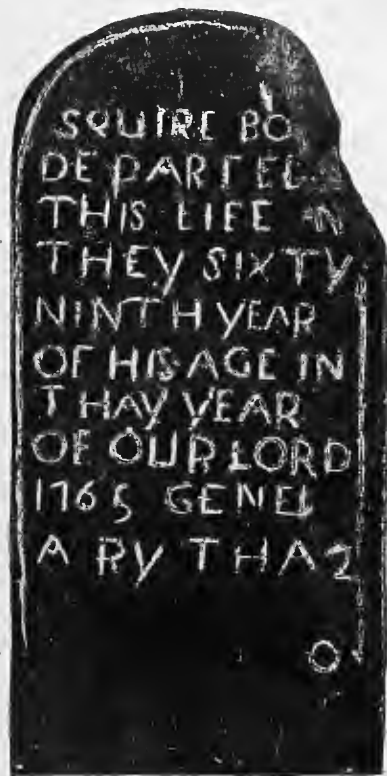 SQUIRE BO
DEPARTED
THIS LIFE IN
THEY SIXTY
NINTH YEAR
OF HIS AGE IN
THAY YEAR
OF OUR LORD
1765 GENEL
A RY THA 2